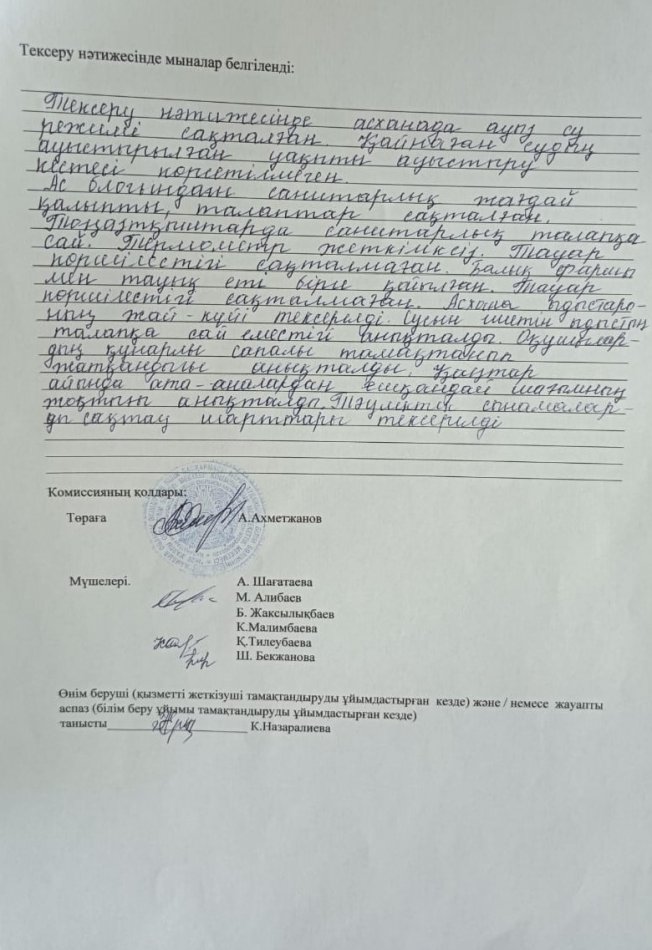 Тексеру нәтижесінде мыналар белгіленді:
Тексеру нәтижесінде асханада ауыз су
режимі сақталған. Қайнаған судың
ауыстырылған уақыты ауыстыру
кестесі көрсетілмеген.
Ас блогындағы санитарлық жағдай
қалыпты, талаптар сақталған.
Тоңазтқыштарда санитарлық талапқа
сай. Термометр жеткіліксіз. Тауар
көршілестігі сақталмаған. Балық фаршы
мен тауық еті бірге қойылған. Тауар
көршілестігі сақталмаған. Асхана ыдыстары-
ның жай-күйі тексерілді. Сусын ішетін ыдыстың
талапқа сай еместігі анықталды. Оқушылар-
дың құнарлы сапалы тамақтанып
жатқандығы анықталды. Қаңтар
айында ата-аналардан ешқандай шағымның
жоқтығы анықталды. Тәуліктік сынамалар-
ды сақтау шарттары тексерілді
Комиссияның қолдары:
Төраға А.Ахметжанов
Мүшелері. А. Шағатаева
М. Алибаев
Б. Жаксылықбаев
К.Малимбаева
Қ.Тилеубаева
Ш. Бекжанова
Өнім беруші (қызметті жеткізуші тамақтандыруды ұйымдастырған кезде) және / немесе жауапты
аспаз (білім беру ұйымы тамақтандыруды ұйымдастырған кезде)
танысты К.Назаралиева